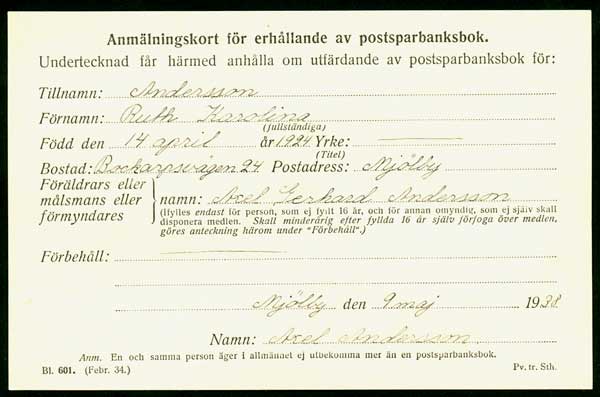 Anmälningskort för erhållande av postsparbanksbok.
Undertecknad får härmed anhålla om utfärdande av postsparbanksbok för:
Tillnamn: Andersson
Förnamn: Ruth Karolina
(fullständiga)
Född den 14 april år 1924. Yrke:
(Titel)
Bostad: Bockarpsvägen 24 Postadress: Mjölby
Föräldrars eller
målsmans eller
förmyndares
namn: Axel Gerhard Andersson
(Ifylles endast för person, som ej fyllt 16 år, och för annan omyndig, som ej själv skall
disponera medlen. Skall minderårig efter fyllda 16 år själv förfoga över medlen,
göres anteckning härom under "Förbehåll".)
Förbehåll:
Mjölby den 9 maj 1938
Namn: Axel Andersson
Anm. En och samma person äger i allmänhet ej utbekomma mer än en postsparbanksbok.
Bl. 601. (Febr. 34.) Pv. tr. Sth.